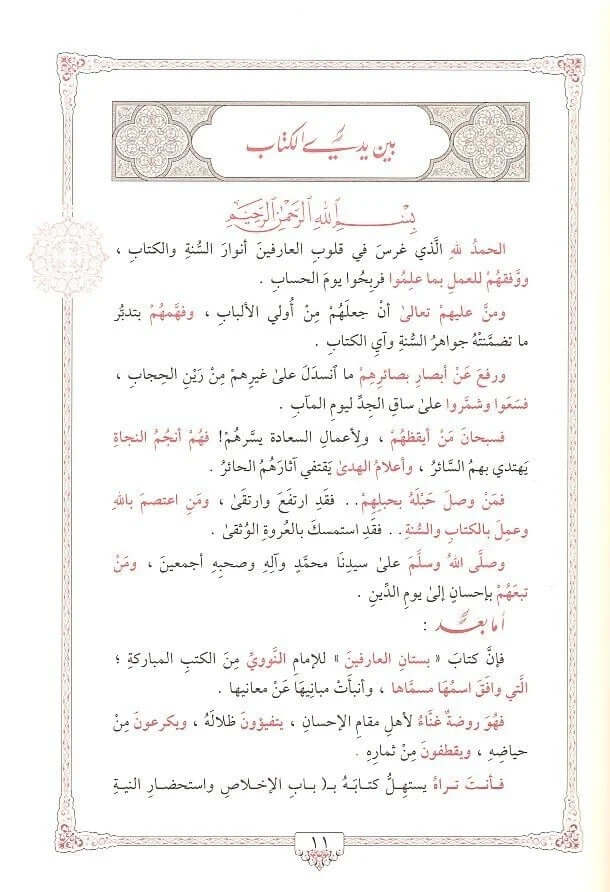 بين يدي الكتاب
بِسْمِ اللهِ الرَّحْمٰنِ الرَّحِيْمِ
الحمدُ للهِ الَّذي غرسَ في قلوبِ العارفينَ أنوارَ السُّنةِ والكتابِ ،
ووفَّقهُمْ للعملِ بما علِمُوا فربِحُوا يومَ الحسابِ .
ومنَّ عليهِمْ تعالىٰ أنْ جعلَهُمْ مِنْ أُولي الألبابِ ، وفهَّمهُمْ بتدبُّر
ما تضمَّنتْهُ جواهرُ السُّنةِ وآيِ الكتابِ .
ورفعَ عَنْ أبصارِ بصائرِهِمْ ما ٱنسدَلَ علىٰ غيرِهِمْ مِنْ رَيْنِ الحِجابِ ،
فسَعَوا وشمَّروا علىٰ ساقِ الجِدِّ ليومِ المآبِ .
فسبحانَ مَنْ أيقظَهُمْ ، ولِأعمالِ السعادة يسَّرهُمْ! فهُمْ أنجُمُ النجاةِ
يَهتدي بهمُ السَّائرُ ، وأعلامُ الهدىٰ يَقتفي آثارَهُمُ الحائرُ .
فمَنْ وصلَ حَبْلَهُ بحبلِهِمْ.. فقَدِ ارتفَعَ وارتقىٰ ، ومَنِ اعتصمَ باللهِ
وعمِلَ بالكتابِ والسُّنةِ.. فقَدِ استمسكَ بالعُروةِ الوُثقىٰ .
وصلَّى اللهُ وسلَّمَ علىٰ سيدِنَا محمَّدٍ وآلِهِ وصحبِهِ أجمعينَ ، ومَنْ
تبعَهُمْ بإحسانٍ إلىٰ يومِ الدِّينِ .
أما بعد :
فإنَّ كتابَ « بستانِ العارفينَ » للإمامِ النَّوويِّ مِنَ الكتبِ المباركةِ ؛
الَّتي وافَقَ اسمُهَا مسمَّاها ، وأنبأَتْ مبانِيهَا عَنْ معانيها .
فهُوَ روضةٌ غنَّاءُ لأهلِ مقامِ الإحسانِ ، يتفيؤونَ ظلالَهُ ، ويكرعونَ مِنْ
حياضِهِ ، ويقطفونَ مِنْ ثمارِهِ .
فـأنـتَ تـراهُ يستهِـلُّ كتـابَـهُ بـ( بـابِ الإخـلاصِ واستحضـارِ النيـةِ
١١